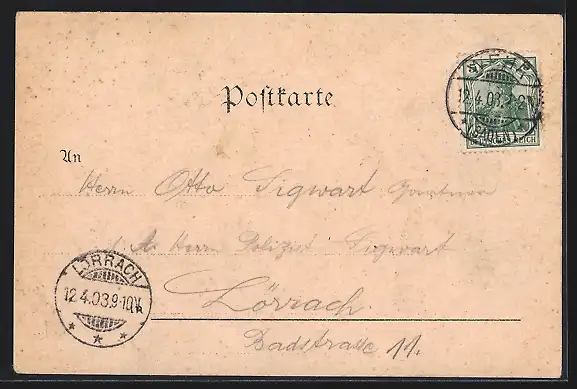 Postkarte
12.4.03.
(BADEN)
REICH
An
Herrn Otto Sigwart
Herrn Polizist Sigwart
LÖRRACH
12.4.03.9-10V.
Lörrach
Badstrasse 11.